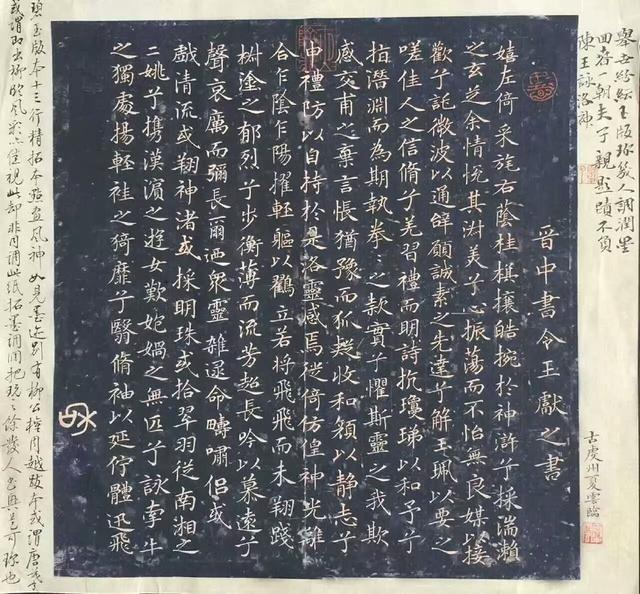 陳王詠洛神
晉中書令王獻之書
古虔州夏雲臨
嬉左倚采旄右蔭桂棋攘皓捥於神滸兮採湍瀨
之玄芝余情悅其淑美兮心振蕩而不怡無良媒以接
歡兮託微波以通辭願誠素之先達兮解玉珮以要之
嗟佳人之信脩兮羌習禮而明詩抗瓊珶以和予兮
指潛淵而為期執拳々之款實兮懼斯靈之我欺
感交甫之棄言悵猶豫而狐疑收和顏以静志兮
申禮防以自持於是洛靈感焉徙倚仿偟神光離
合乍陰乍陽擢輕軀以鶴立若將飛飛而未翔踐
椒塗之郁烈兮步衡薄而流芳超長吟以慕遠兮
聲哀厲而彌長爾迺眾靈雜遝命疇嘯侶或
戲清流或翔神渚或採明珠或拾翠羽從南湘之
二姚兮攜漢濱之遊女歎匏媧之無匹兮詠牽牛
之獨處揚輕袿之猗靡兮翳脩袖以延佇體迅飛
碧玉版本十三行精拓本殆盡風神如見墨迹別有柳公權跋本或謂唐摹
或謂即出柳此却非此紙拓墨調潤把玩之餘發人可珍也